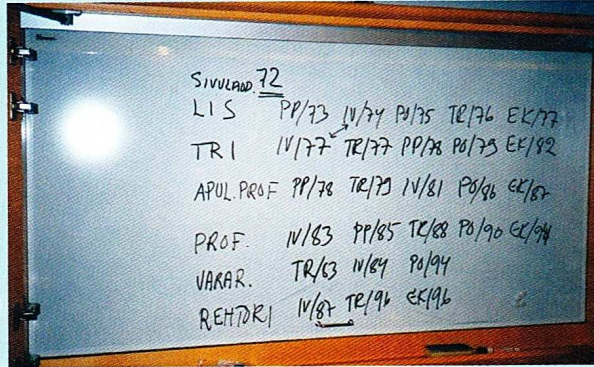 SIVULAUD. 72
LIS PP/73 IV/74 PO/75 TR/76 EK/77
TRI IV/77 TR/77 PP/78 PO/79 EK/82
APUL. PROF PP/78 TR/79 IV/81 PO/86 EK/87
PROF. IV/83 PP/85 TR/88 PO/90 EK/94
VARAR. TR/83 IV/84 PO/94
REHTORI IV/87 TR/96 EK/96